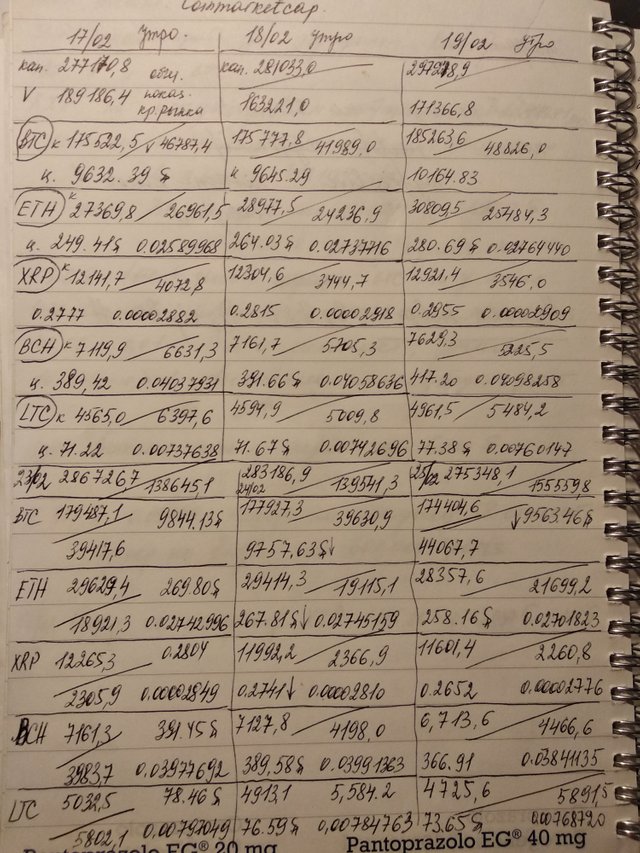 Coinmarketcap.
17/02 утро. 18/02 утро 19/02 утро
кап. 277170,8 общ. кап. 281033,0 297928,9
V 189186,4 показ. кр.рынка 163221,0 171366,8
BTC к 175522,5 / ↓ 46787,4 175777,8 / 41989,0 185263,6 / 48826,0
ц. 9632.39 $ ц 9645.29 10164.83
ETH к 27369,8 / 26961,5 28977,5 / 24236,9 30809,5 / 25484,3
ц. 249.41$ 0.02589968 264.03$ 0.02737716 280.69$ 0.02764440
XRP к 12141,7 / 4072,8 12304,6 / 3444,7 12921.4 / 3546,0
0.2777 0.00002882 0.2815 0.00002918 0.2955 0.00002909
BCH к 7119,9 / 6631,3 7161,7 / 5705,3 7629,3 / 5225,5
ц. 389,42 0.04037931 391.66$ 0.04058636 417.20 0.04098258
LTC к 4565,0 / 6397,6 4594,9 / 5009,8 4961,5 / 5484,2
ц. 71.22 0.00737638 71.67$ 0.00742696 77.38$ 0.00760147
23/02 286726,7 / 138645,1 24/02 283186,9 / 139541,3 25/02 275348,1 / 155559,8
BTC 179487,1 / 9844.13$ 177927,3 / 39630,9 174404,6 / ↓9563.46$
39417,6 9757,63$↓ 44067,7
ETH 29629,4 / 269.80$ 29414,3 / 19115,1 28357,6 / 21699,2
18921,3 0.02742996 267.81$↓ 0.02745159 258.16$ 0.02701823
XRP 12265,3 / 0.2804 11992,2 / 2366,9 11601,4 / 2260,8
2305,9 0.00002849 0.2741↓ 0.00002810 0.2652 0.00002776
BCH 7161,3 / 391.45$ 7127,8 / 4198,0 6,713,6 / 4466,6
3983,7 0,03977692 389,58$ 0.03991363 366.91 0.03841135
LTC 5032,5 / 78.46$ 4913,1 5,584.2 4725,6 / 5891,5
5802,1 0,00797049 76.59$ 0,00784763 73.65$ 0.00768720
Pantoprazolo EG® 20 mg Pantoprazolo EG® 40 mg